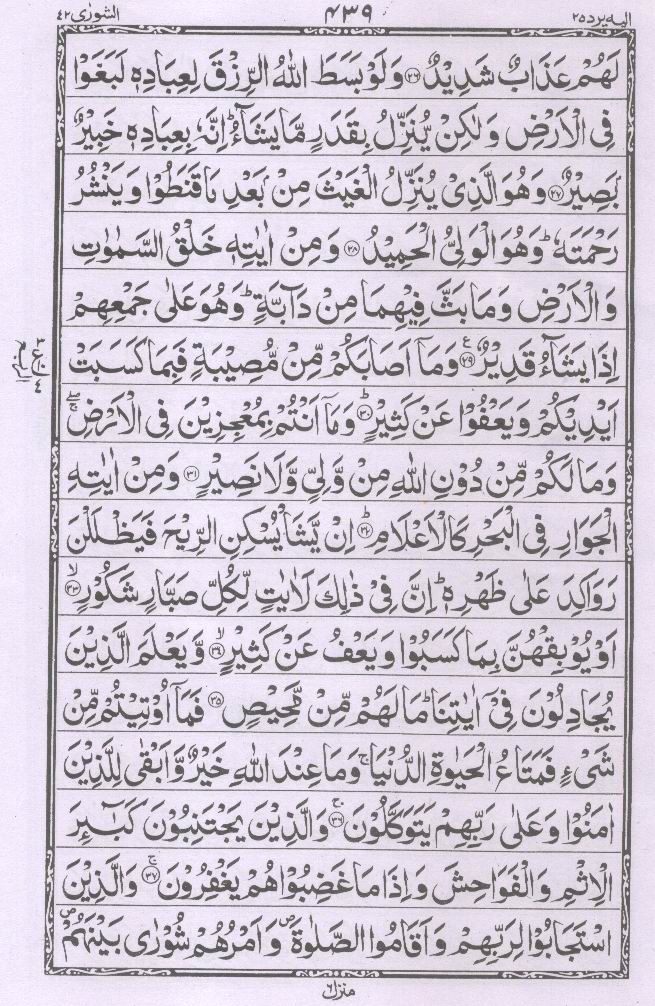 الیه یرد ۲۵
۴۳۹
الشورٰی ۴۲
لَهُمْ عَذَابٌ شَدِیْدٌ ﴿۲۶﴾ وَلَوْ بَسَطَ اللّٰهُ الرِّزْقَ لِعِبَادِهٖ لَبَغَوْا
فِی الْاَرْضِ وَلٰكِنْ یُّنَزِّلُ بِقَدَرٍ مَّا یَشَآءُ ؕ اِنَّهٗ بِعِبَادِهٖ خَبِیْرٌۢ
بَصِیْرٌ ﴿۲۷﴾ وَهُوَ الَّذِیْ یُنَزِّلُ الْغَیْثَ مِنْۢ بَعْدِ مَا قَنَطُوْا وَیَنْشُرُ
رَحْمَتَهٗ ؕ وَهُوَ الْوَلِیُّ الْحَمِیْدُ ﴿۲۸﴾ وَمِنْ اٰیٰتِهٖ خَلْقُ السَّمٰوٰتِ
وَالْاَرْضِ وَمَا بَثَّ فِیْهِمَا مِنْ دَآبَّةٍ ؕ وَهُوَ عَلٰی جَمْعِهِمْ
اِذَا یَشَآءُ قَدِیْرٌ ﴿۲۹﴾ ع وَمَاۤ اَصَابَكُمْ مِّنْ مُّصِیْبَةٍ فَبِمَا كَسَبَتْ
۳
ع
۴
اَیْدِیْكُمْ وَیَعْفُوْا عَنْ كَثِیْرٍ ﴿۳۰﴾ؕ وَمَاۤ اَنْتُمْ بِمُعْجِزِیْنَ فِی الْاَرْضِ ۖۚ
وَمَا لَكُمْ مِّنْ دُوْنِ اللّٰهِ مِنْ وَّلِیٍّ وَّلَا نَصِیْرٍ ﴿۳۱﴾ وَمِنْ اٰیٰتِهِ
الْجَوَارِ فِی الْبَحْرِ كَالْاَعْلَامِ ﴿۳۲﴾ؕ اِنْ یَّشَاْ یُسْكِنِ الرِّیْحَ فَیَظْلَلْنَ
رَوَاكِدَ عَلٰی ظَهْرِهٖ ؕ اِنَّ فِیْ ذٰلِكَ لَاٰیٰتٍ لِّكُلِّ صَبَّارٍ شَكُوْرٍ ﴿۳۳﴾ۙ
اَوْ یُوْبِقْهُنَّ بِمَا كَسَبُوْا وَیَعْفُ عَنْ كَثِیْرٍ ﴿۳۴﴾ۙ وَّیَعْلَمَ الَّذِیْنَ
یُجَادِلُوْنَ فِیْۤ اٰیٰتِنَا ؕ مَا لَهُمْ مِّنْ مَّحِیْصٍ ﴿۳۵﴾ فَمَاۤ اُوْتِیْتُمْ مِّنْ
شَیْءٍ فَمَتَاعُ الْحَیٰوةِ الدُّنْیَا ۚ وَمَا عِنْدَ اللّٰهِ خَیْرٌ وَّاَبْقٰی لِلَّذِیْنَ
اٰمَنُوْا وَعَلٰی رَبِّهِمْ یَتَوَكَّلُوْنَ ﴿۳۶﴾ۚ وَالَّذِیْنَ یَجْتَنِبُوْنَ كَبٰٓئِرَ
الْاِثْمِ وَالْفَوَاحِشَ وَاِذَا مَا غَضِبُوْا هُمْ یَغْفِرُوْنَ ﴿۳۷﴾ۚ وَالَّذِیْنَ
اسْتَجَابُوْا لِرَبِّهِمْ وَاَقَامُوا الصَّلٰوةَ ۪ وَاَمْرُهُمْ شُوْرٰی بَیْنَهُمْ ۪
منزل ۶